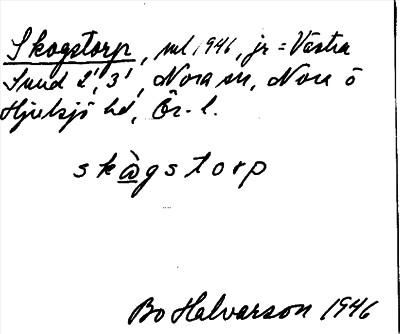 Skogstorp, ml 1946, jr = Västra
Sund 2¹, 3¹, Nora sn, Nora o
Hjulsjö hd, Ör. l.
skὼgstorp
Bo Halvarson 1946